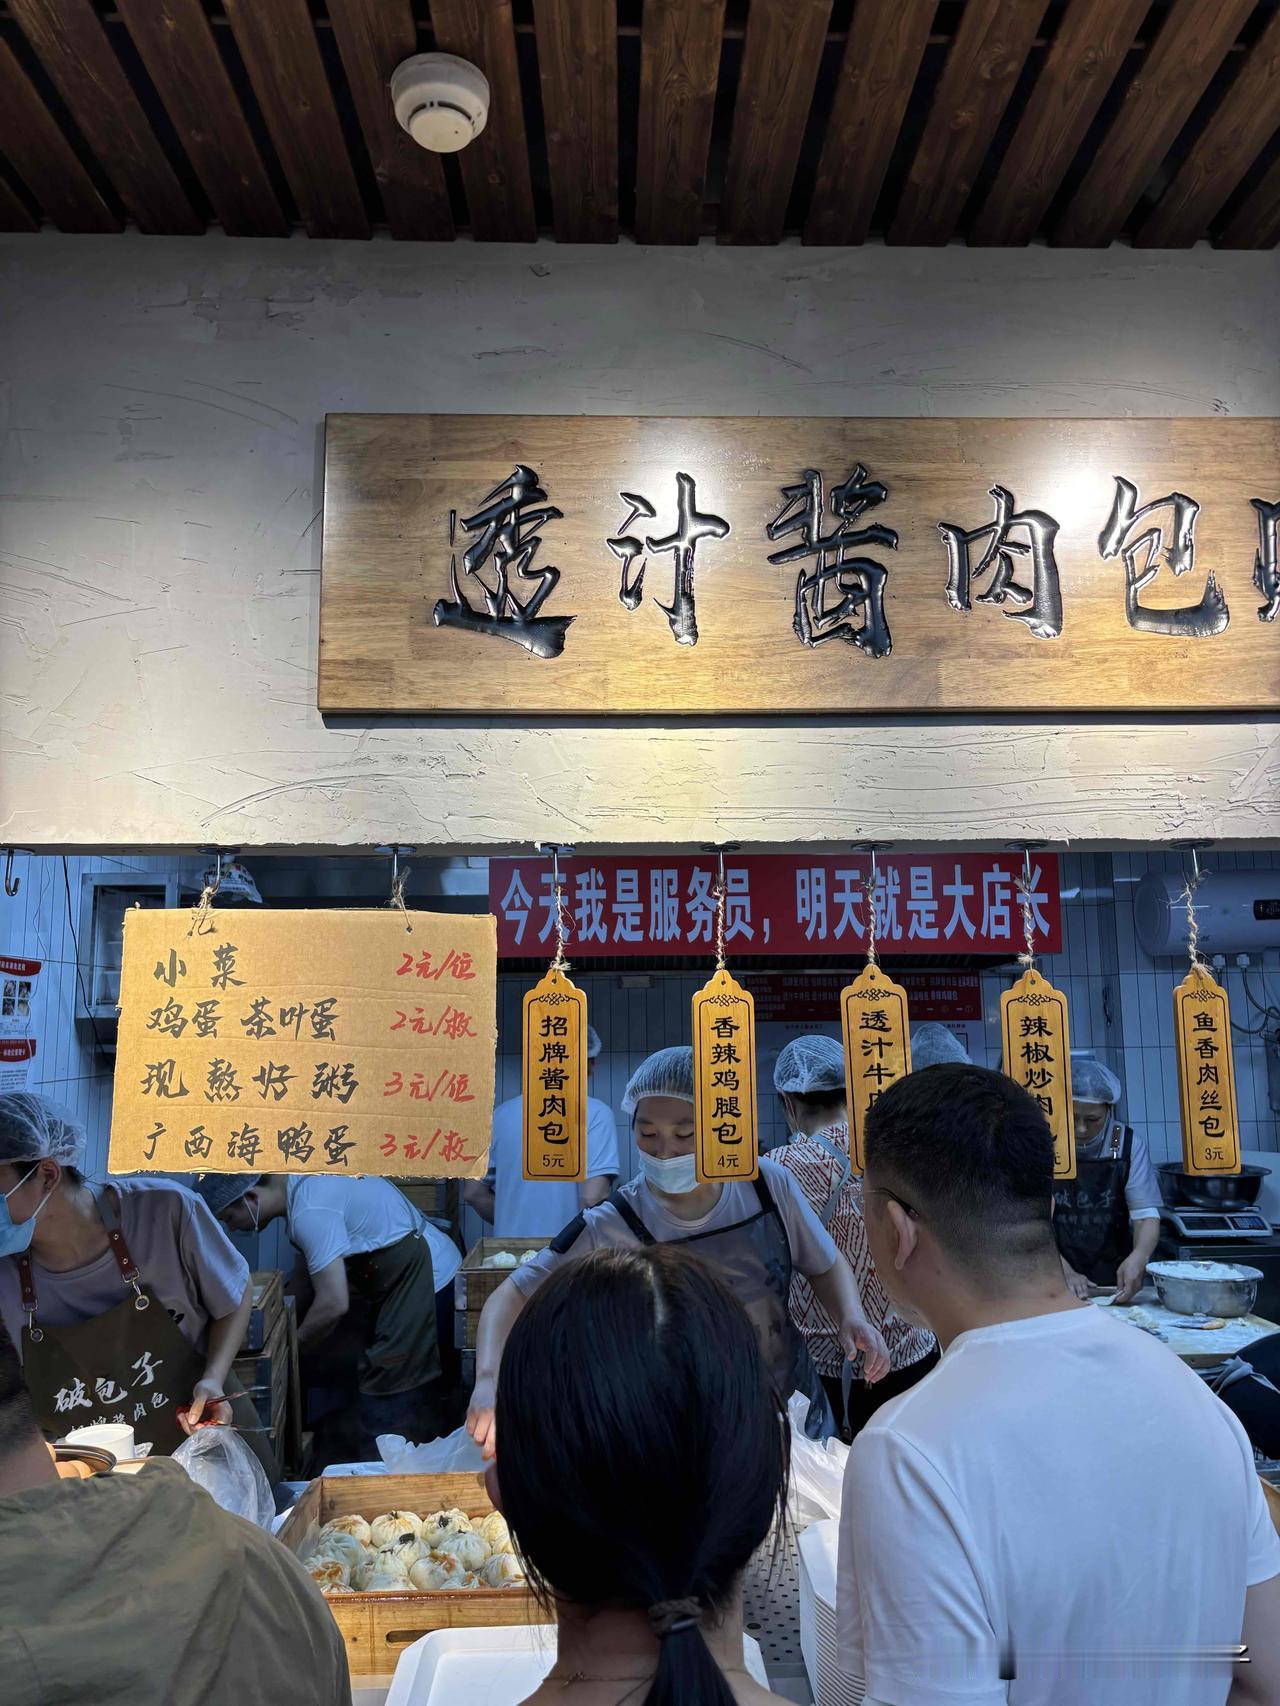 透汁酱肉包
今天我是服务员，明天就是大店长
小菜 2元/位
鸡蛋 茶叶蛋 2元/枚
现熬好粥 3元/位
广西海鸭蛋 3元/枚
招牌酱肉包
5元
香辣鸡腿包
4元
透汁牛
辣椒炒肉
元
鱼香肉丝包
3元
破包子
招牌酱肉包
破包子